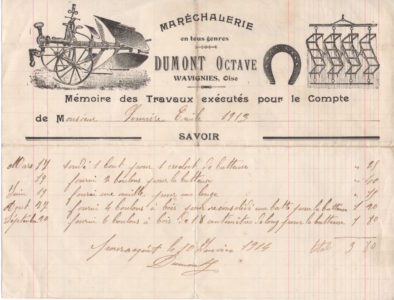 MARÉCHALERIE
en tous genres
DUMONT OCTAVE
WAVIGNIES, Oise
Mémoire des Travaux exécutés pour le Compte
de Monsieur Emile 1913
SAVOIR
Mars 17 soudé 1 bout pour 1 de batteuse " 25
19 fourni 2 boulons pour la batteuse " 60
Juin 19 fourni une pour une " 10
Août 27 fourni 4 boulons à bois pour la batteuse 1 20
Septembre 20 fourni 6 boulons à bois de 18 centimètres de long pour la batteuse 1 80
pour acquit le 10 Janvier 1914 total 3 80
Dumont